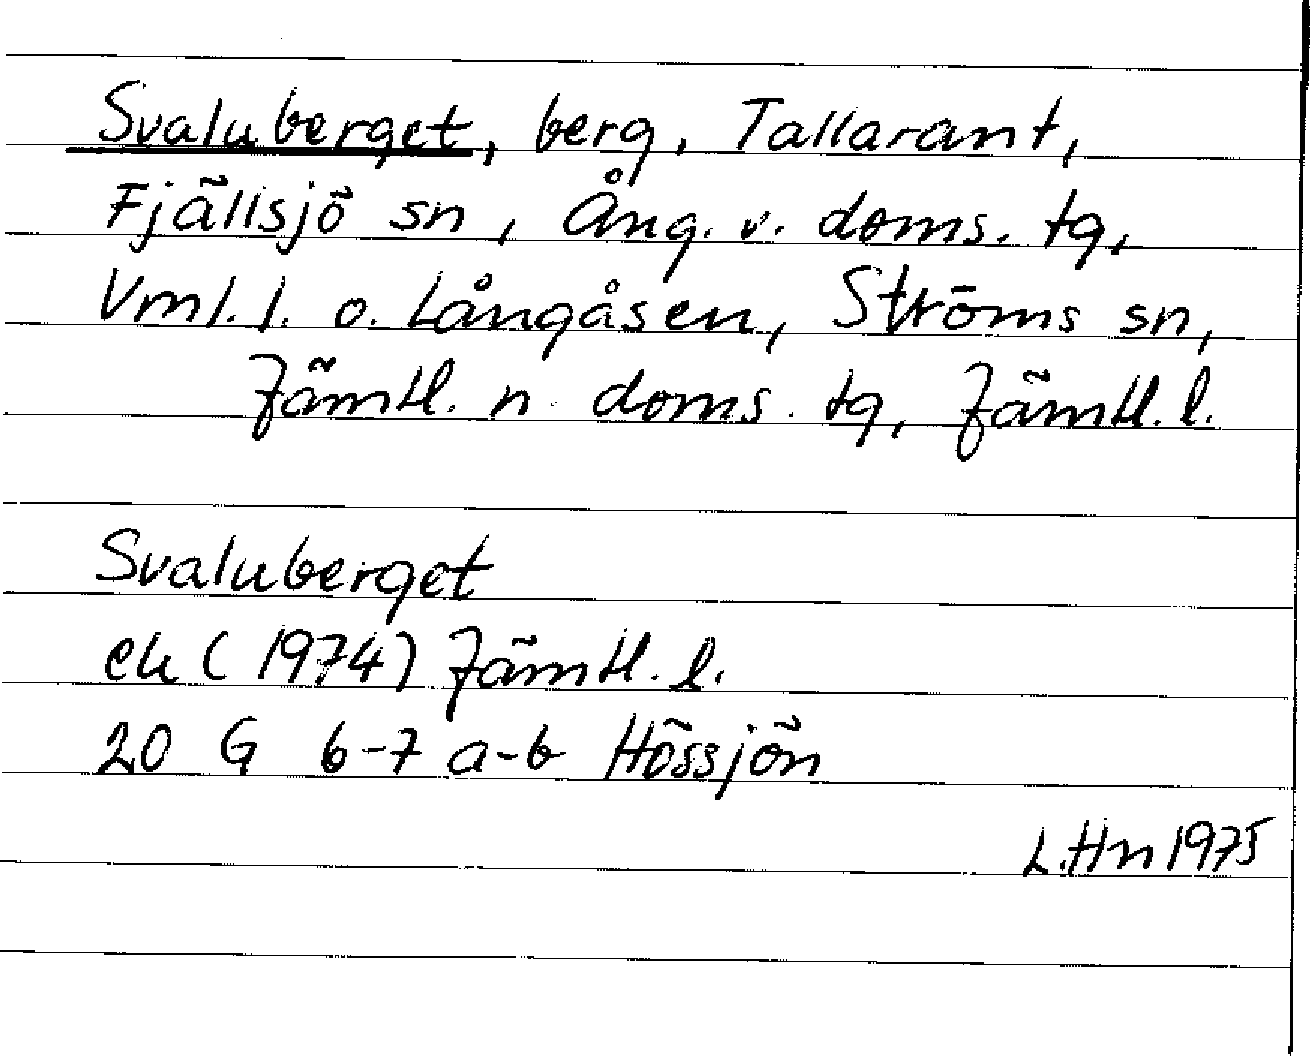 Svaluberget, berg, Tallarant,
Fjällsjö sn, Ång. v. doms. tg,
Vml. l. o. Långåsen, Ströms sn,
Jämtl. n. doms. tg, Jämtl. l.
Svaluberget
ek (1974) Jämtl. l.
20 G 6-7 a-b Hössjön
L.Hn 1975